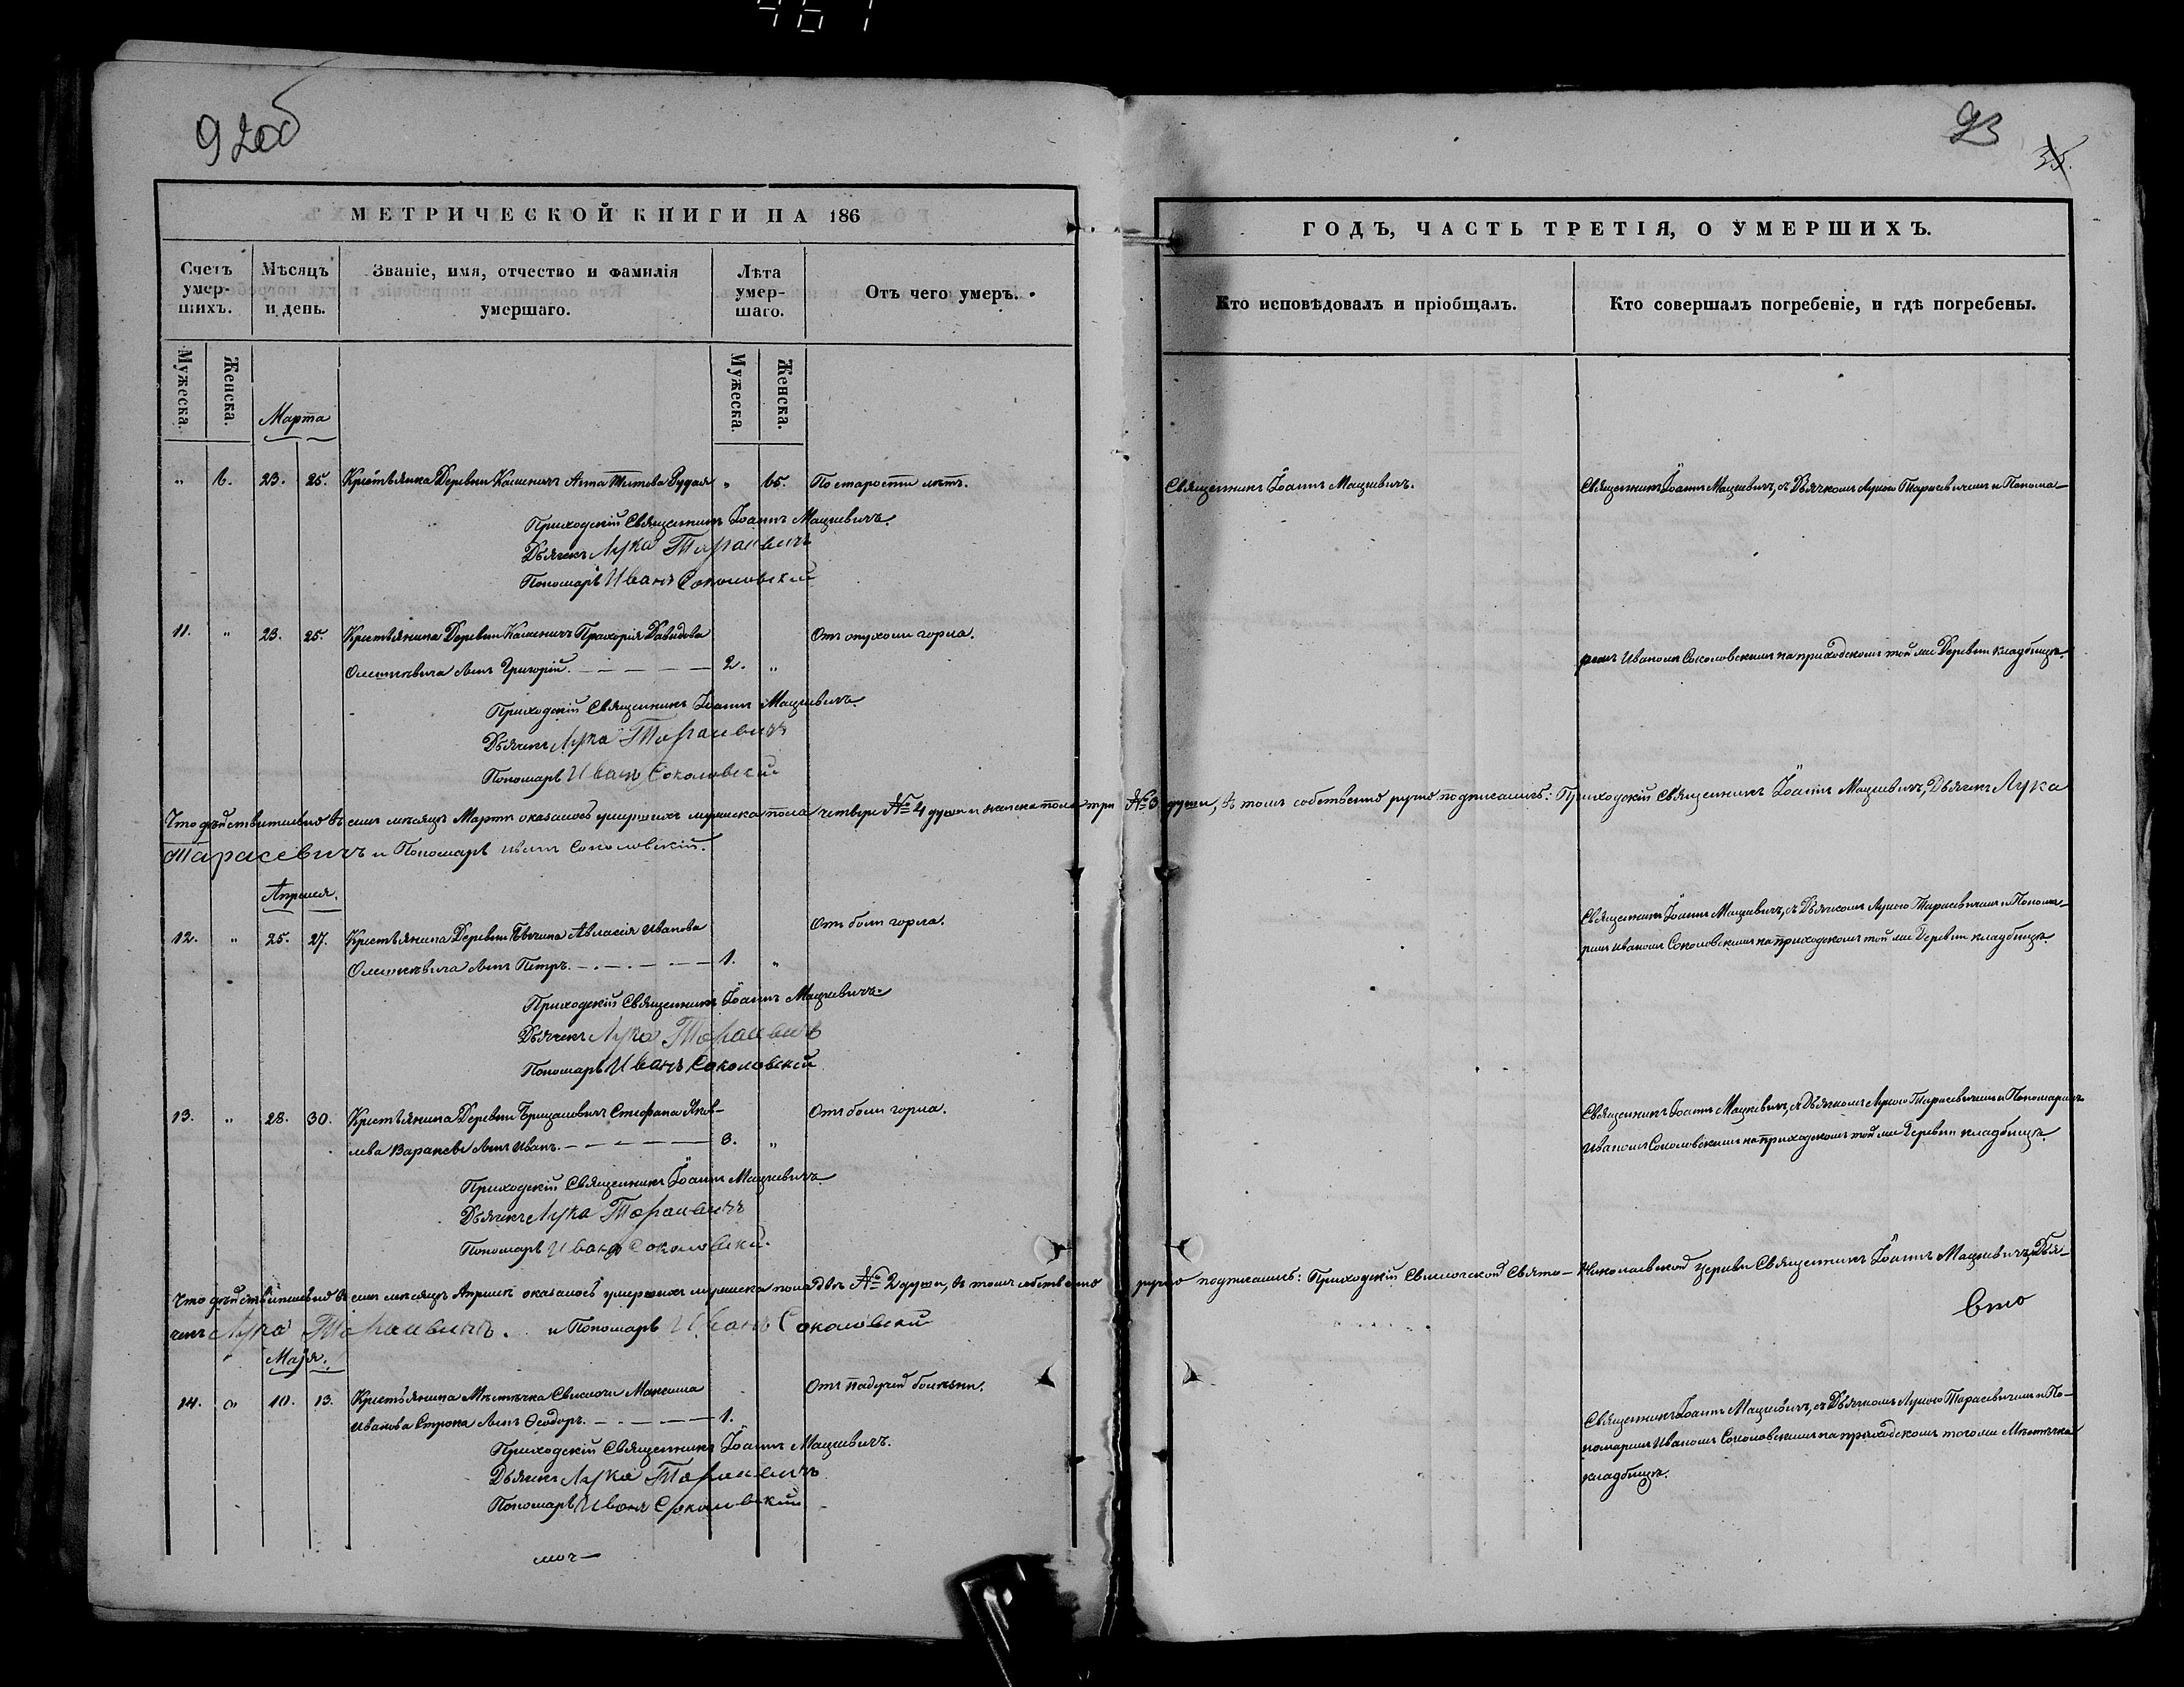 467
92об
МЕТРИЧЕСКОЙ КНИГИ НА 186
Счетъ умер-шихъ.
Мѣсяцъ и день.
Званіе, имя, отчество и фамилія умершаго.
Лѣта умер-шаго.
Отъ чего умеръ.
Мужеска.
Женска.
Мужеска.
Женска.
Марта
" 6. 23. 25. Крестьянка Деревни Каменичъ Анна Титова Рудая " 65. По старости лѣтъ.
Приходскій Священникъ Іоаннъ Мацкевичъ.
Дьячекъ Лука Тарасевичъ
Пономарь Иванъ Соколовскій
11. " 23. 25. Крестьянина Деревни Каменичъ Прохорія Давидова От опухоли горла.
Олешкевича сынъ Григорій. 2. "
Приходскій Священникъ Іоаннъ Мацкевичъ.
Дьячекъ Лука Тарасевичъ
Пономарь Иванъ Соколовскій
Что дѣйствительно въ семъ мѣсяцѣ Мартѣ оказалось умершихъ мужеска пола четверо № 4 души и женска пола три № 3 души, въ томъ собственно ручно подписались: Приходскій Священникъ Іоаннъ Мацкевичъ, Дьячекъ Лука
Тарасевичъ и Пономарь Иванъ Соколовскій.
Апреля.
12. " 25. 27. Крестьянина Деревни Авласія Иванова Отъ боли горла.
Олешкевича сынъ Петръ. 1. "
Приходскій Священникъ Іоаннъ Мацкевичъ.
Дьячекъ Лука Тарасевичъ
Пономарь Иванъ Соколовскій
13. " 28. 30. Крестьянина Деревни Стефана Яков- Отъ боли горла.
лева сынъ Иванъ. 3. "
Приходскій Священникъ Іоаннъ Мацкевичъ
Дьячекъ Лука Тарасевичъ
Пономарь Иванъ Соколовскій.
Что дѣйствительно въ семъ мѣсяцѣ Апрелѣ оказалось умершихъ мужеска пола двѣ № 2 души, въ томъ собственно ручно подписались: Приходскій Свислочской Свято-Николаевской Церкви Священникъ Іоаннъ Мацкевичъ, Дья-
чекъ Лука Тарасевичъ. и Пономарь Иванъ Соколовскій
Маія.
14. " 10. 13. Крестьянина Мѣстечка Свислочи Максима Отъ падучей болѣзни.
Иванова Строка сынъ Ѳеодоръ. 1.
Приходскій Священникъ Іоаннъ Мацкевичъ.
Дьячекъ Лука Тарасевичъ
Пономарь Иванъ Соколовскій
93
ГОДЪ, ЧАСТЬ ТРЕТІЯ, О УМЕРШИХЪ.
Кто исповѣдовалъ и пріобщалъ.
Кто совершалъ погребеніе, и гдѣ погребены.
Священникъ Іоаннъ Мацкевичъ.
Священникъ Іоаннъ Мацкевичъ, съ Дьячкомъ Лукою Тарасевичемъ и Понома-
ремъ Иваномъ Соколовскимъ на приходскомъ той же Деревни кладбищѣ.
Священникъ Іоаннъ Мацкевичъ, съ Дьячкомъ Лукою Тарасевичемъ и Понома-
ремъ Иваномъ Соколовскимъ на приходскомъ той же Деревни кладбищѣ.
Священникъ Іоаннъ Мацкевичъ, съ Дьячкомъ Лукою Тарасевичемъ и Пономаремъ
Иваномъ Соколовскимъ на приходскомъ той же Деревни кладбищѣ.
Священникъ Іоаннъ Мацкевичъ, съ Дьячкомъ Лукою Тарасевичемъ и По-
номаремъ Иваномъ Соколовскимъ на приходскомъ того же Мѣстечка
кладбищѣ.